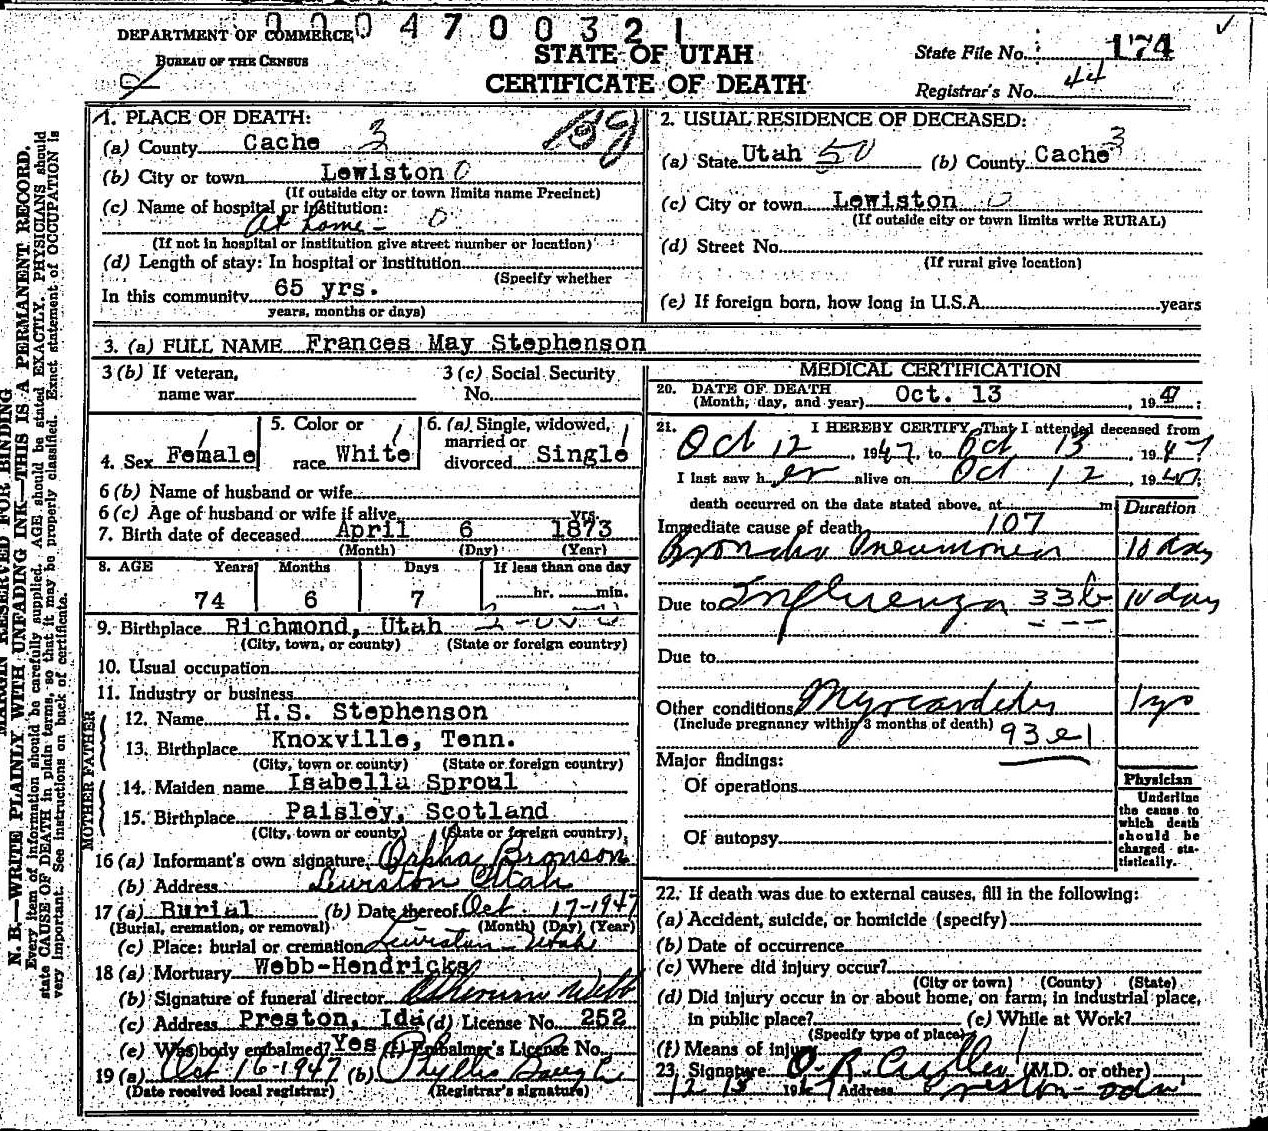 0004700321
DEPARTMENT OF COMMERCE
BUREAU OF THE CENSUS
STATE OF UTAH
CERTIFICATE OF DEATH
State File No. 174
Registrar's No. 44
MARGIN RESERVED FOR BINDING
N. B.—WRITE PLAINLY WITH UNFADING INK—THIS IS A PERMANENT RECORD.
Every item of information should be carefully supplied. AGE should be stated EXACTLY. PHYSICIANS should
state CAUSE OF DEATH in plain terms, so that it may be properly classified. Exact statement of OCCUPATION is
very important. See instructions on back of certificate.
1. PLACE OF DEATH:
(a) County Cache 3
(b) City or town Lewiston 0
(If outside city or town limits name Precinct)
(c) Name of hospital or institution:
At home - 0
(If not in hospital or institution give street number or location)
(d) Length of stay: In hospital or institution
(Specify whether
In this community 65 yrs.
years, months or days)
2. USUAL RESIDENCE OF DECEASED:
(a) State Utah 50 (b) County Cache 3
(c) City or town Lewiston 0
(If outside city or town limits write RURAL)
(d) Street No.
(If rural give location)
(e) If foreign born, how long in U.S.A. years
3. (a) FULL NAME Frances May Stephenson
3 (b) If veteran, name war
3 (c) Social Security No.
4. Sex Female
5. Color or race White
6. (a) Single, widowed, married or divorced Single
6 (b) Name of husband or wife
6 (c) Age of husband or wife if alive yrs.
7. Birth date of deceased April 6 1873
(Month) (Day) (Year)
8. AGE Years Months Days If less than one day
74 6 7 hr. min.
9. Birthplace Richmond, Utah
(City, town, or county) (State or foreign country)
10. Usual occupation
11. Industry or business
FATHER
12. Name H.S. Stephenson
13. Birthplace Knoxville, Tenn.
(City, town or county) (State or foreign country)
MOTHER
14. Maiden name Isabella Sproul
15. Birthplace Paisley, Scotland
(City, town or county) (State or foreign country)
16 (a) Informant's own signature Orpha Bronson
(b) Address Lewiston Utah
17 (a) Burial (b) Date thereof Oct. 17-1947
(Burial, cremation, or removal) (Month) (Day) (Year)
(c) Place: burial or cremation Lewiston - Utah
18 (a) Mortuary Webb-Hendricks
(b) Signature of funeral director Webb
(c) Address Preston, Ida (d) License No. 252
(e) Was body embalmed? Yes (f) Embalmer's License No.
19 (a) Oct 16-1947 (b) Phyllis
(Date received local registrar) (Registrar's signature)
MEDICAL CERTIFICATION
20. DATE OF DEATH
(Month, day, and year) Oct. 13, 1947;
21. I HEREBY CERTIFY, That I attended deceased from
Oct 12, 1947, to Oct 13, 1947
I last saw her alive on Oct 12 1947;
death occurred on the date stated above, at m Duration
Immediate cause of death 107
Broncho Pneumonia 10 days
Due to Influenza 33b 10 days
Due to
Other conditions Myocarditis 1 yr
(Include pregnancy within 3 months of death) 93e1
Major findings:
Of operations
Of autopsy
Physician
Underline
the cause to
which death
should be
charged sta-
tistically.
22. If death was due to external causes, fill in the following:
(a) Accident, suicide, or homicide (specify)
(b) Date of occurrence
(c) Where did injury occur?
(City or town) (County) (State)
(d) Did injury occur in or about home, on farm, in industrial place,
in public place? (e) While at Work?
(Specify type of place)
(f) Means of injury
23. Signature O. R. Cutler (M.D. or other)
Address Preston